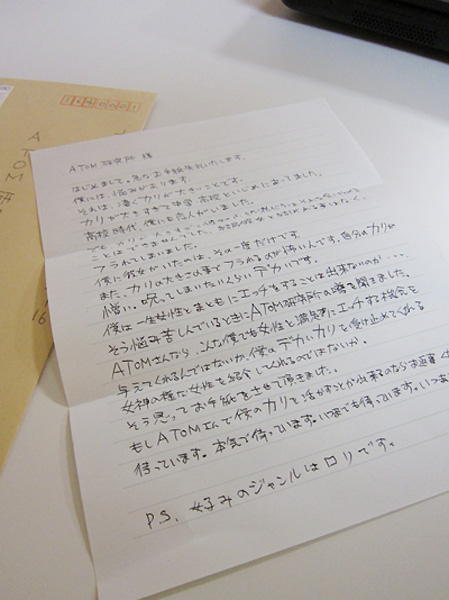 1140001
ATOM
16
ATOM研究所 様
はじめまして。急なお手紙失礼いたします。
僕には、悩みがあります。
それは、凄くカリが大きいことです。
カリが大きすぎて中学 高校といじめにあってました。
高校時代、僕にも恋人がいました。
フラれてしまいました。
僕に彼女がいたのは、その一度だけです。
また、カリの大きさの事でフラれるのが怖いんです。自分のカリが
憎い。呪ってしまいたいくらいデカいです。
僕は一生女性とまともにエッチをすることは出来ないのか・・・・
そう悩み苦しんでいるときにATOM研究所の噂を聞きました。
ATOMさんなら、こんな僕でも女性と満足にエッチする機会を
与えてくれるんではないか。僕のデカいカリを受け止めてくれる
女神の様な女性を紹介してくれるのではないか。
そう思ってお手紙を出させて頂きました。
もしATOMさんで僕のカリを活かすことが出来るのならお返事
待っています。本気で待っています。いつまでも待っています。
P.S. 好みのジャンルはロリです。